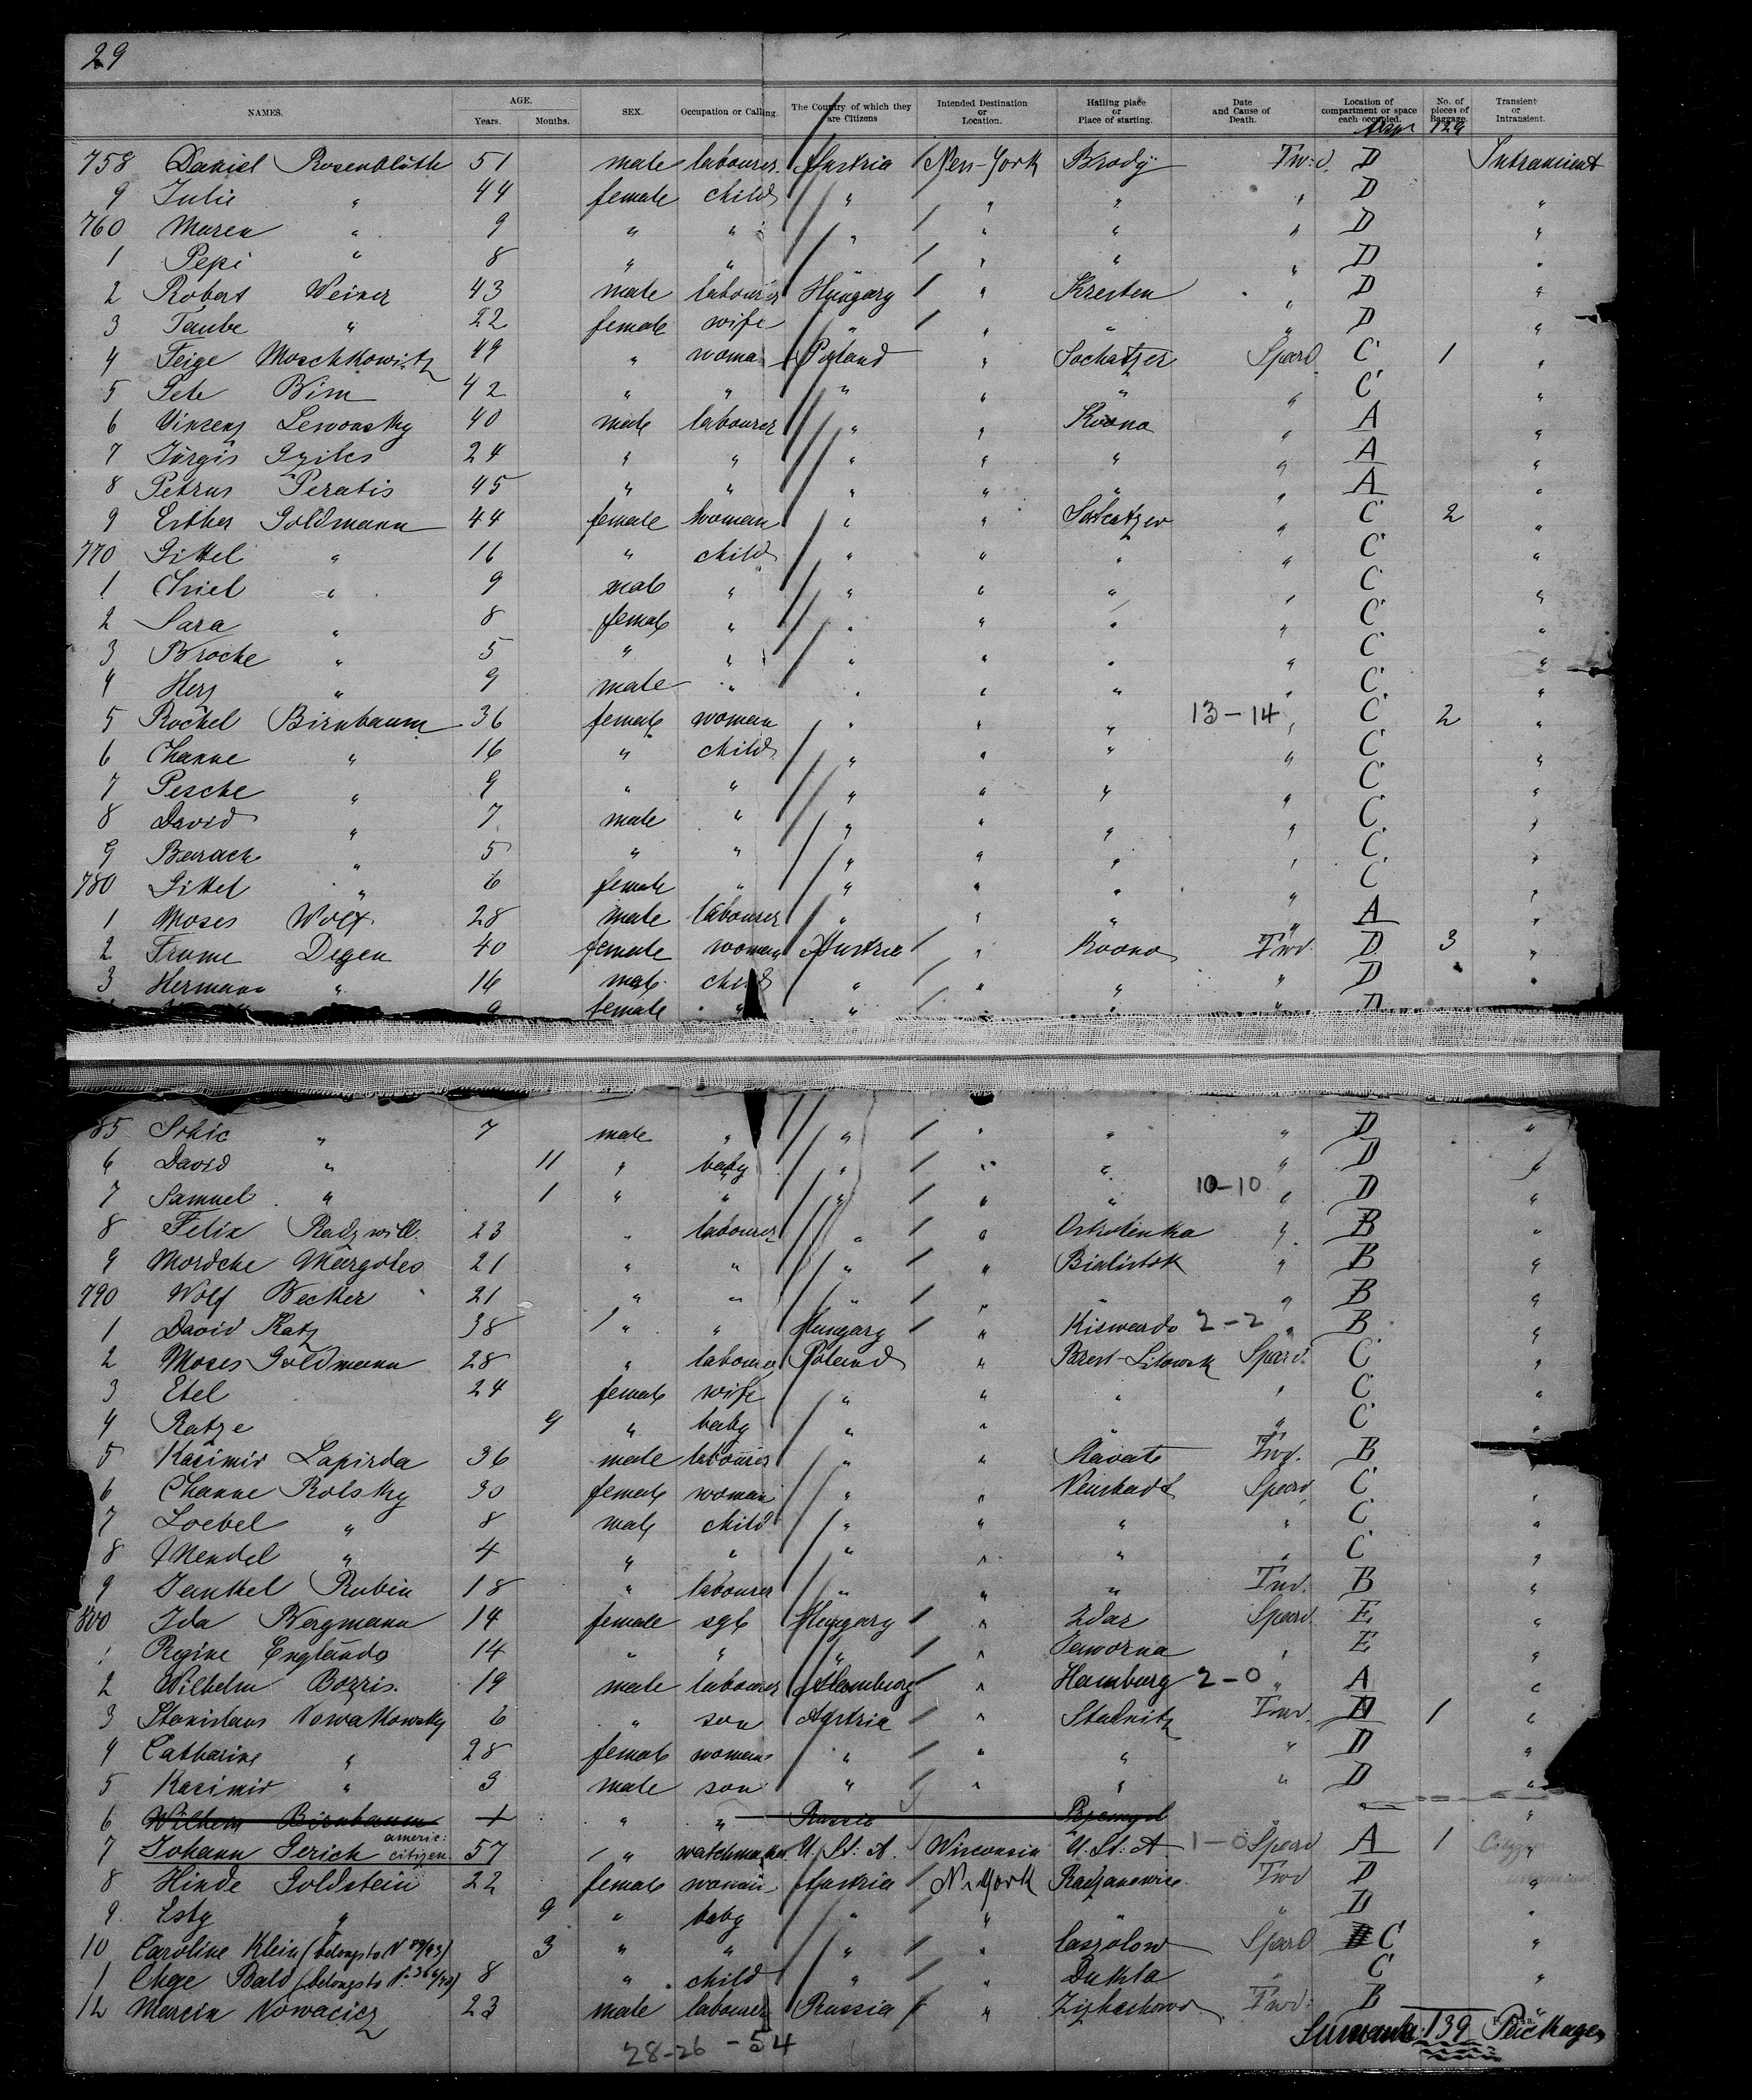 29
NAMES. AGE. Years. Months. SEX. Occupation or Calling. The Country of which they are Citizens Intended Destination or Location. Hailing place or Place of starting. Date and Cause of Death. Location of compartment or space each occupied. No. of pieces of Baggage. Transient or Intransient.
129
758 Daniel Rosenblüth 51 male labourer Austria New-York Brody Twd. D Intransient
9 Julie " 44 female child " " " " D "
760 Maren " 9 " " " " " " D "
1 Pepi " 8 " " " " " " D "
2 Robert Weiner 43 male labourer Hungary " Kresten " D "
3 Taube " 22 female wife " " " " D "
4 Feige Moschkowitz 49 " woman Poland " Sochatzer Spard. C 1 "
5 Pete Birn 42 " " " " " " C "
6 Vinzenz Lewonsky 40 male labourer " " Kowno " A "
7 Jürgis 24 " " " " " " A "
8 Petrus Peratis 45 " " " " " " A "
9 Esther Goldmann 44 female woman " " Sochatzew " C 2 "
770 Gittel " 16 " child " " " " C "
1 Chiel " 9 male " " " " " C "
2 Sara " 8 female " " " " " C "
3 Broche " 5 " " " " " " C "
4 Herz " 9 male " " " " " C "
5 Rochel Birnbaum 36 female woman " " " 13-14 " C 2 "
6 Channe " 16 " child " " " " C "
7 Pesche " 9 " " " " " " C "
8 David " 7 male " " " " " C "
9 Barach " 5 " " " " " " C "
780 Gittel " 6 female " " " " " C "
1 Moses Wolf 28 male labourer " " " " A "
2 Frume Degen 40 female woman Austria " Kowno Twd. D 3 "
3 Hermann " 16 male child " " " " D "
9 female " " " " " D
85 " 7 male " " " " " D "
6 David " 11 " baby " " " " D "
7 Samuel " 1 " " " " " 10-10 " D "
8 Felix Radzwill. 23 " labourer " " Ostrolenka " B "
9 Mordche Margoles 21 " " " " Bialistok " B "
790 Wolf Becker 21 " " " " " " B "
1 David Katz 38 " " Hungary " Kiswardo 2-2 " B "
2 Moses Goldmann 28 " labourer Poland " Brest-Litowsk Spard. C "
3 Etel 24 female wife " " " " C "
4 Ratze 9 " baby " " " " C "
5 Kasimir Lapirda 36 male labourer " " Twd. B "
6 Channe Rolsky 30 female woman " " Neustadt Spard C "
7 Loebel " 8 male child " " " " C "
8 Mendel " 4 " " " " " " C "
9 Jankel Rubin 18 " labourer " " " Twd. B "
800 Ida Bergmann 14 female sgl Hungary " Zdar Spard. E "
1 Regine Englando 14 " " " " Jaworna " E "
2 Wilhelm Bozris. 19 male labourer Hamburg " Hamburg 2-0 " A "
3 Stanislaus Nowakowsky 6 " son Austria " Stadnitz Twd. D 1 "
4 Catharine " 28 female woman " " " " D "
5 Kasimir " 3 male son " " " " D "
6 Wilhelm Birnbaum " " Russia Przemysl "
7 Johann Gerich americ: citizen. 57 " watchmaker U. St: A Wisconsin U. St: A 1-0 Spard A 1
8 Hinde Goldstein 22 female woman Austria N. York Radzanowice Twd D "
9. Esty " 9 " baby " " " " D "
10 Caroline Klein (belongs to N 89/93) 3 " " " " Spard C "
1 Chge Bald (belongs to N. 366/93) 8 " child " " Dukla " C "
12 Marcin Nowacicz 23 male labourer Russia " Twd. B
28-26-54
139 Packages